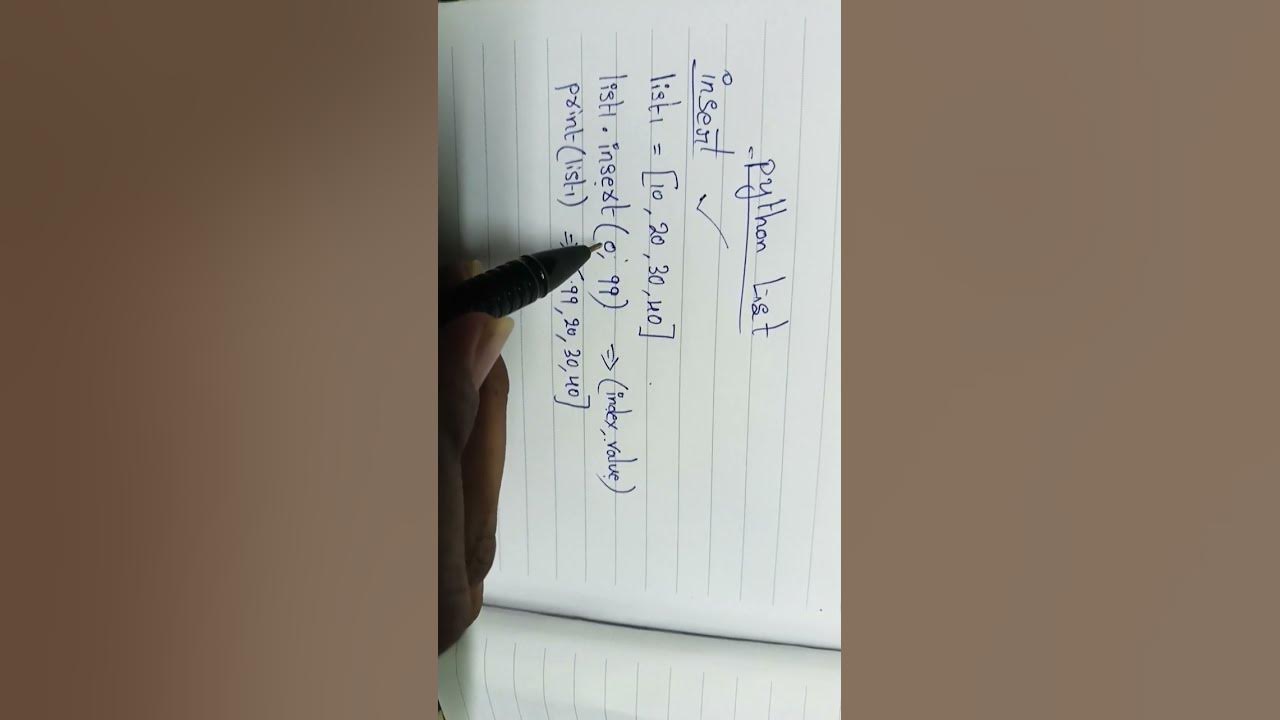 Python List
insert ✓
list1 = [10, 20, 30, 40]
list1.insert(0, 99) => (index, value)
print(list1) => 99, 20, 30, 40]